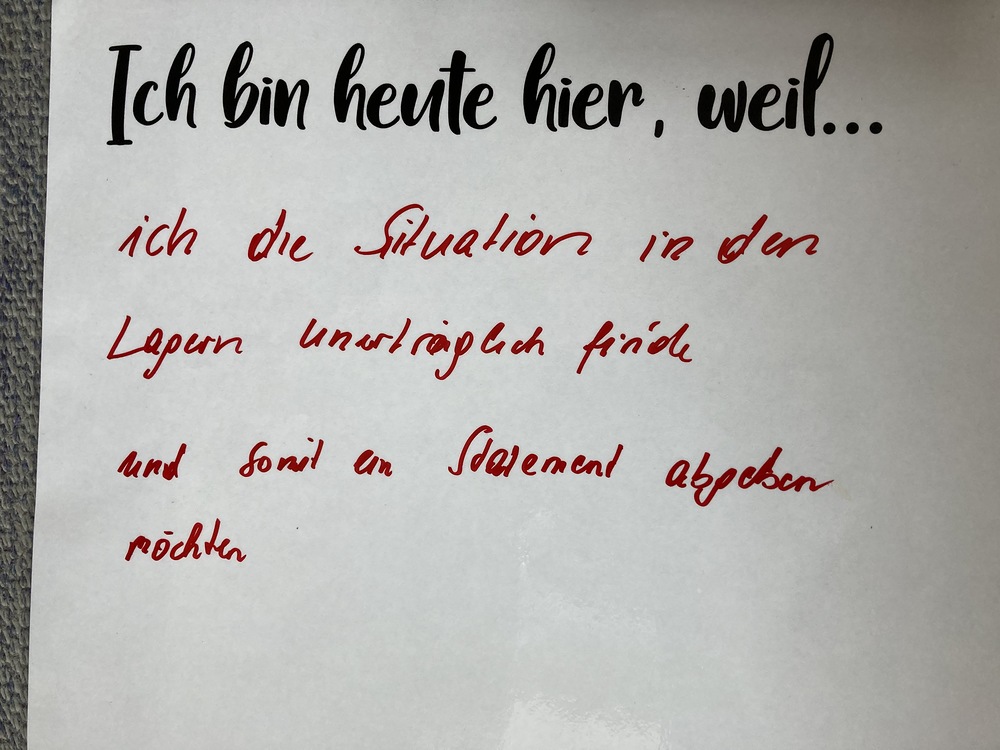 Ich bin heute hier, weil...
ich die Situation in den
Lagern unerträglich finde
und somit ein Statement abgeben
möchten